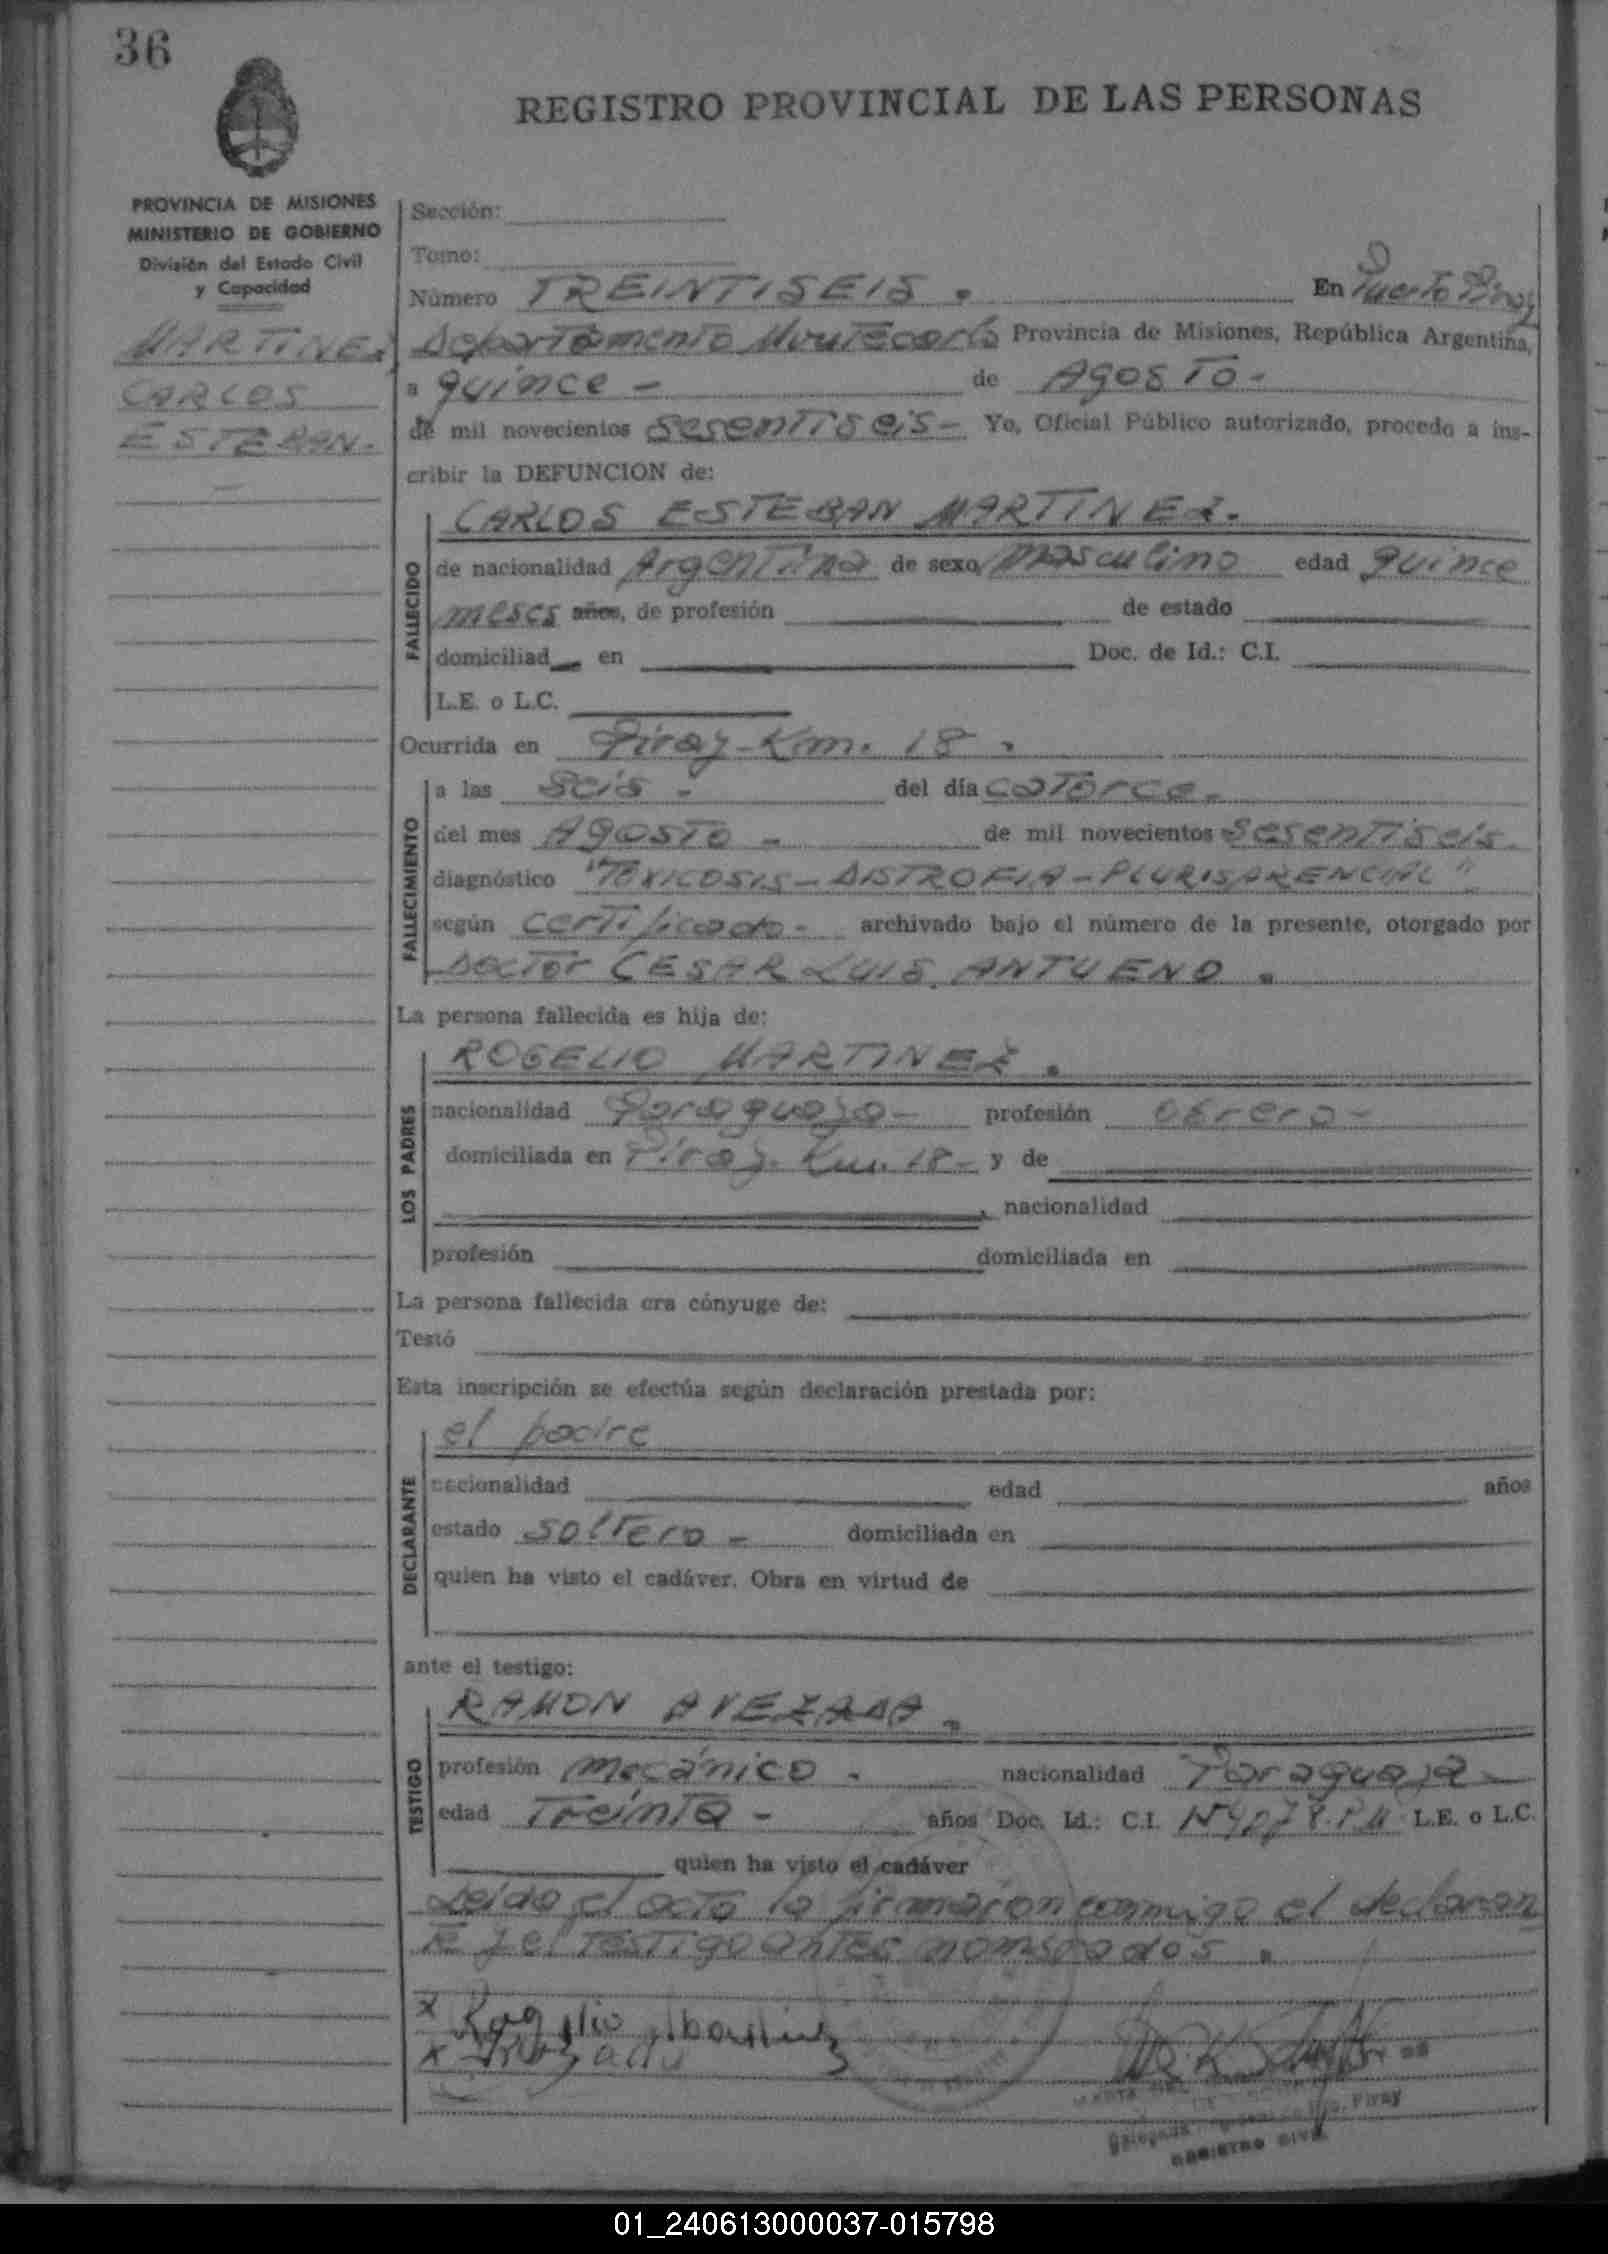 36
REGISTRO PROVINCIAL DE LAS PERSONAS
PROVINCIA DE MISIONES
MINISTERIO DE GOBIERNO
División del Estado Civil
y Capacidad
MARTINEZ
CARLOS
ESTEBAN.-
Sección:
Tomo:
Número TREINTISEIS. En Puerto Piray
Departamento Montecarlo Provincia de Misiones, República Argentina,
a quince - de AGOSTO-
de mil novecientos sesentiseis- Yo, Oficial Público autorizado, procedo a ins-
cribir la DEFUNCION de:
CARLOS ESTEBAN MARTINEZ.
FALLECIDO
de nacionalidad Argentina de sexo masculino edad quince
meses años, de profesión de estado
domiciliad en Doc. de Id.: C.I.
L.E. o L.C.
Ocurrida en Piray-Km. 18.
FALLECIMIENTO
a las seis - del día catorce.
del mes AGOSTO - de mil novecientos sesentiseis.
diagnóstico "TOXICOSIS-DISTROFIA-PLURISARENCIAL"
según certificado- archivado bajo el número de la presente, otorgado por
Doctor CESAR LUIS ANTUENO.
La persona fallecida es hija de:
ROGELIO MARTINEZ.
LOS PADRES
nacionalidad Paraguaya- profesión obrero-
domiciliada en Piray. Km. 18- y de
, nacionalidad
profesión domiciliada en
La persona fallecida era cónyuge de:
Testó
Esta inscripción se efectúa según declaración prestada por:
el padre
DECLARANTE
nacionalidad edad años
estado soltero - domiciliada en
quien ha visto el cadáver. Obra en virtud de
ante el testigo:
RAMON AVEZADA.
TESTIGO
profesión mecánico. nacionalidad Paraguaya-
edad Treinta - años Doc. Id.: C.I. L.E. o L.C.
quien ha visto el cadáver
Leida el acta la firmaron conmigo el declaran
te y el testigo antes nombrados.
x Rogelio Martinez
x
Delegada Pto. Piray
REGISTRO CIVIL
01_240613000037-015798